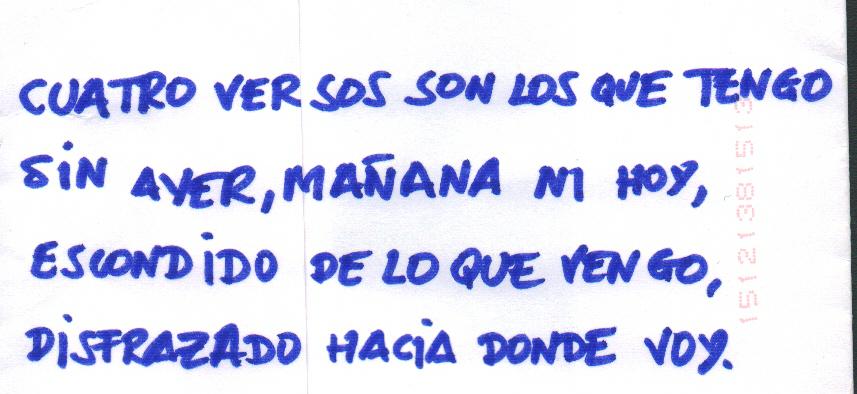 CUATRO VERSOS SON LOS QUE TENGO
SiN AYER, MAÑANA NI HOY,
ESCONDiDO DE LO QUE VENGO,
DiSFRAZADO HACiA DONDE VOY.
15121381513